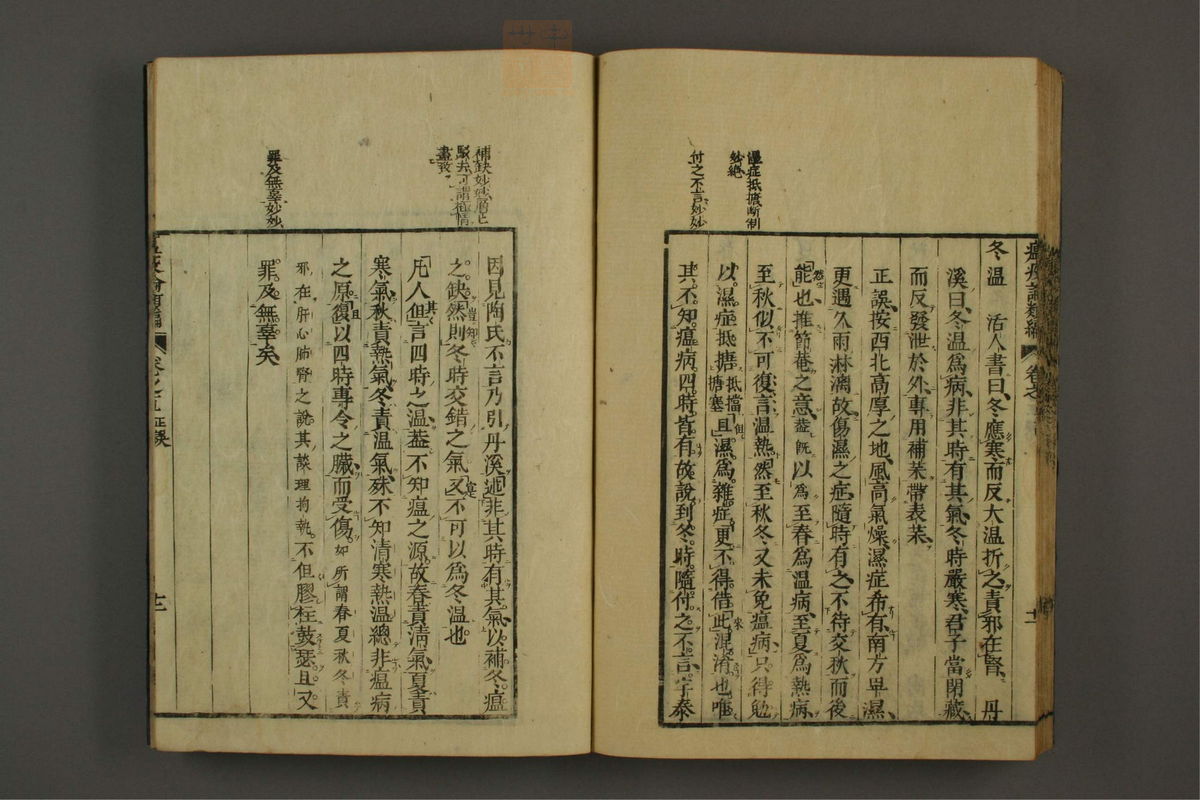 溫症抵搪斷制
妙絕
付之不言妙妙
瘟疫論類編 卷之
冬温 活人書曰冬應寒而反大温折之責邪在腎 丹
溪曰冬温為病非其時有其氣冬時嚴寒君子當閉藏
而反發泄於外專用補藥帶表藥
正誤按西北高厚之地風高氣燥濕症希有南方卑濕
更遇久雨淋漓故傷濕之症隨時有之不待交秋而後
能也推節菴之意葢既以為至春為温病至夏為熱病
至秋似不可復言温熱然至秋冬又未免瘟病只得勉
以濕症抵搪抵擋搪塞且濕為雜症更不得借此混淆也嘔
其不知瘟病四時皆有故說到冬時隨付之不言宇泰
補缺妙妙層層
駁去可謂極情
盡致
罪及無辜妙妙
因見陶氏不言乃引丹溪述非其時有其氣以補冬瘟
之缺然則冬時交錯之氣又不可以為冬温也
凡人但言四時之温葢不知瘟之源故春責清氣夏責
寒氣秋責熱氣冬責温氣殊不知清寒熱温總非瘟病
之原復以四時專令之臟而受傷如所謂春夏秋冬責
邪在肝心肺腎之說其議理拘執不但膠柱鼓瑟且又
罪及無辜矣